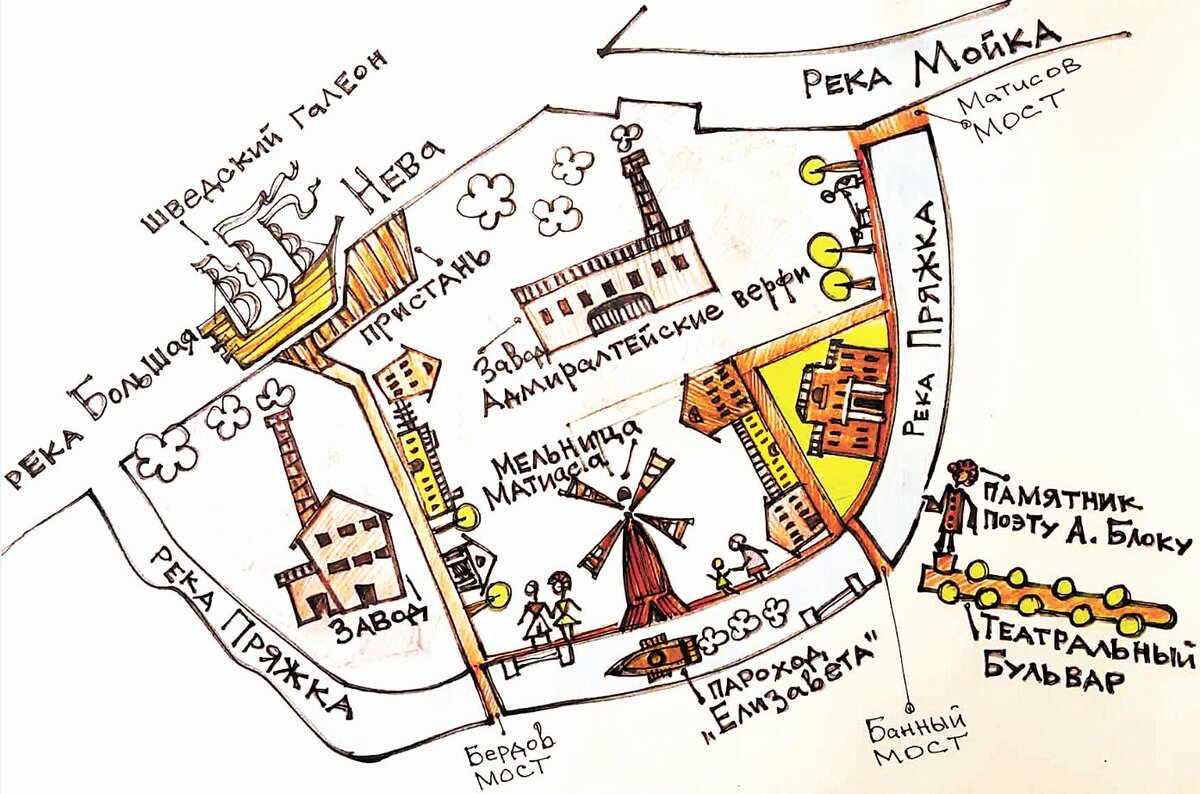 РЕКА МОЙКА
Матисов
МОСТ
ШВЕДСКИЙ ГАЛЕОН
РЕКА БОЛЬШАЯ НЕВА
ПРИСТАНЬ
ЗАВОД
АДМИРАЛТЕЙСКИЕ ВЕРФИ
РЕКА ПРЯЖКА
МЕЛЬНИЦА
МАТИАСА
ПАМЯТНИК
ПОЭТУ А. БЛОКУ
ТЕАТРАЛЬНЫЙ
БУЛЬВАР
ЗАВОД
РЕКА ПРЯЖКА
ПАРОХОД
„ЕЛИЗАВЕТА"
Бердов
МОСТ
Банный
МОСТ